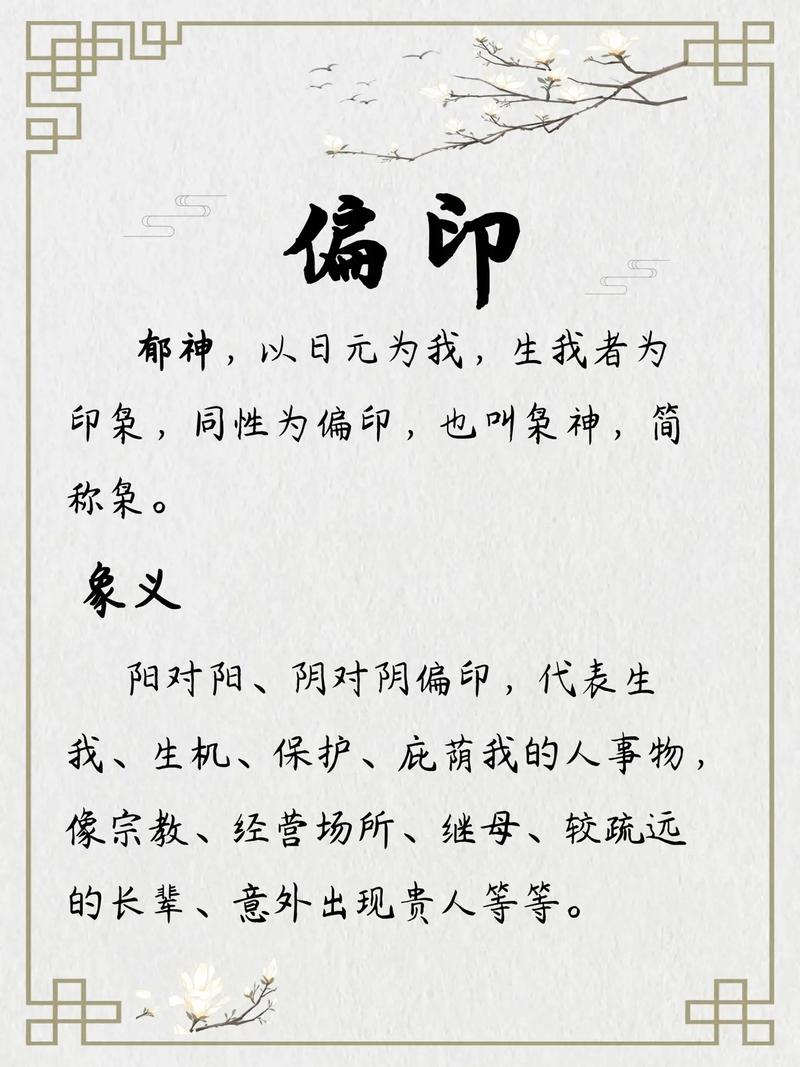 偏印
郁神，以日元为我，生我者为
印枭，同性为偏印，也叫枭神，简
称枭。
象义
阳对阳、阴对阴偏印，代表生
我、生机、保护、庇荫我的人事物，
像宗教、经营场所、继母、较疏远
的长辈、意外出现贵人等等。